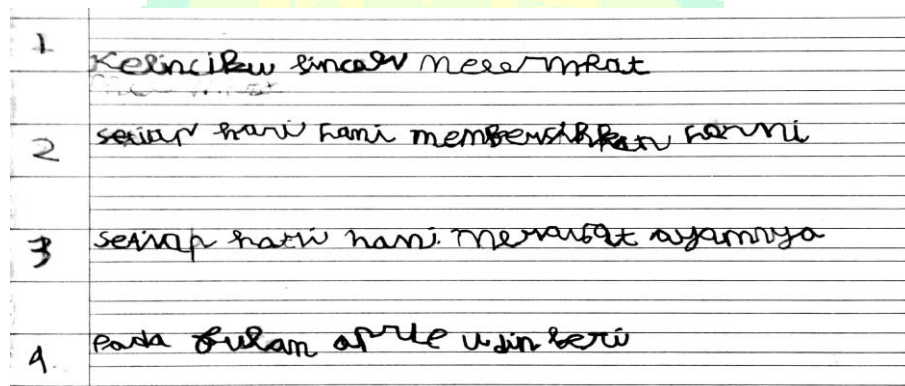 1 Kelinciku lincah melompat
2 setiap hari hani membersihkan
3 setiap hari hani merawat ayamnya
4. Pada bulan aprile udin beri